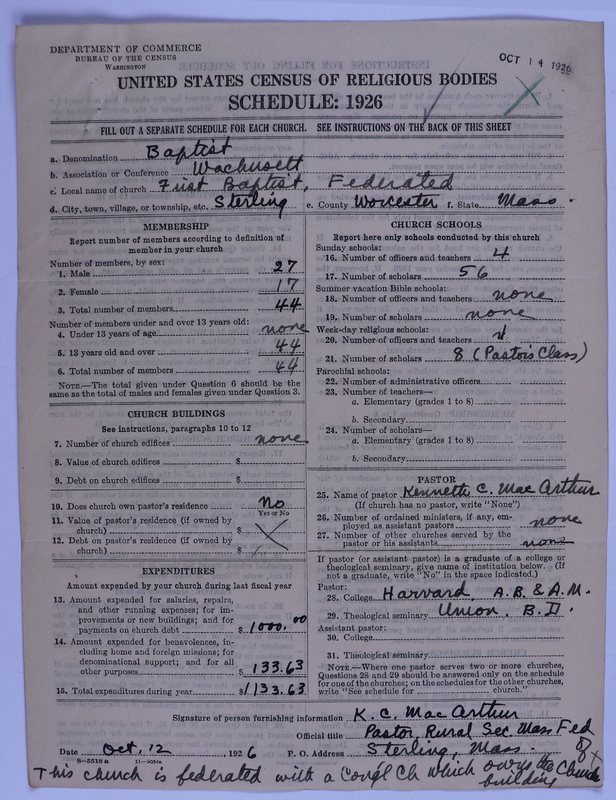 DEPARTMENT OF COMMERCE
BUREAU OF THE CENSUS
WASHINGTON
OCT 14 1926
UNITED STATES CENSUS OF RELIGIOUS BODIES
SCHEDULE: 1926
FILL OUT A SEPARATE SCHEDULE FOR EACH CHURCH. SEE INSTRUCTIONS ON THE BACK OF THIS SHEET
a. Denomination Baptist
b. Association or Conference Wachusett
c. Local name of church First Baptist, Federated
d. City, town, village, or township, etc. Sterling e. County Worcester f. State Mass.
MEMBERSHIP
Report number of members according to definition of
member in your church
Number of members, by sex:
1. Male 27
2. Female 17
3. Total number of members 44
Number of members under and over 13 years old:
4. Under 13 years of age none
5. 13 years old and over 44
6. Total number of members 44
NOTE.—The total given under Question 6 should be
same as the total of males and females given under Question 3.
CHURCH BUILDINGS
See instructions, paragraphs 10 to 12
7. Number of church edifices none
8. Value of church edifices $
9. Debt on church edifices $
10. Does church own pastor's residence No
Yes or No
11. Value of pastor's residence (if owned by
church) $
12. Debt on pastor's residence (if owned by
church) $
EXPENDITURES
Amount expended by your church during last fiscal year
13. Amount expended for salaries, repairs,
and other running expenses; for im-
provements or new buildings; and for
payments on church debt $ 1000.00
14. Amount expended for benevolences, in-
cluding home and foreign missions; for
denominational support; and for all
other purposes $ 133.63
15. Total expenditures during year $1133.63
CHURCH SCHOOLS
Report here only schools conducted by this church
Sunday schools:
16. Number of officers and teachers 4
17. Number of scholars 56
Summer vacation Bible schools:
18. Number of officers and teachers none
19. Number of scholars none
Week-day religious schools:
20. Number of officers and teachers
21. Number of scholars 8 (Pastor's Class)
Parochial schools:
22. Number of administrative officers
23. Number of teachers—
a. Elementary (grades 1 to 8)
b. Secondary
24. Number of scholars—
a. Elementary (grades 1 to 8)
b. Secondary
PASTOR
25. Name of pastor Kenneth C. MacArthur
(If church has no pastor, write "None")
26. Number of ordained ministers, if any, em-
ployed as assistant pastors none
27. Number of other churches served by the
pastor or his assistants none
If pastor (or assistant pastor) is a graduate of a college or
theological seminary, give name of institution below. (If
not a graduate, write "No" in the space indicated.)
Pastor:
28. College Harvard, A.B. & A.M.
29. Theological seminary Union, B.D.
Assistant pastor:
30. College
31. Theological seminary
NOTE.—Where one pastor serves two or more churches,
Questions 28 and 29 should be answered only on the schedule
for one of the churches; on the schedules for the other churches,
write "See schedule for church."
Signature of person furnishing information K. C. MacArthur
Official title Pastor, Rural Sec. Mass. Fed
Date Oct. 12 1926 P. O. Address Sterling, Mass.
8—5518 a 11—9054a
This church is federated with a Cong'l Ch which owns the Church
building